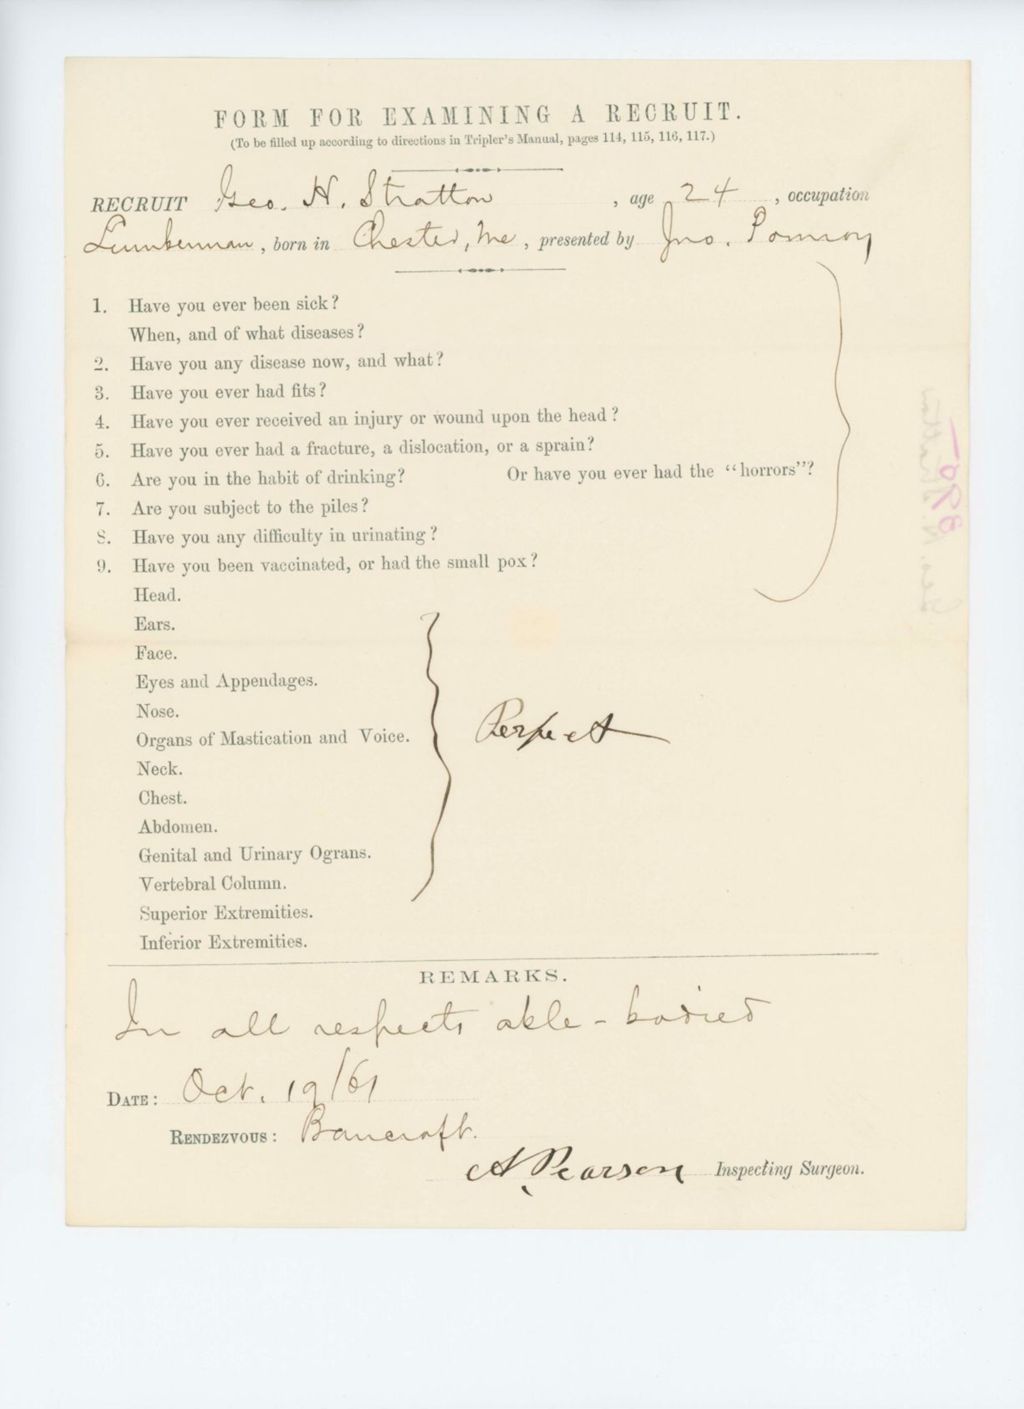 FORM FOR EXAMINING A RECRUIT.
(To be filled up according to directions in Tripler's Manual, pages 114, 115, 116, 117.)
RECRUIT Geo. H. Stratton, age 24, occupation
Lumberman, born in Chester, Me, presented by Jno. Pomroy
1. Have you ever been sick?
When, and of what diseases?
2. Have you any disease now, and what?
3. Have you ever had fits?
4. Have you ever received an injury or wound upon the head?
5. Have you ever had a fracture, a dislocation, or a sprain?
6. Are you in the habit of drinking? Or have you ever had the "horrors"?
7. Are you subject to the piles?
8. Have you any difficulty in urinating?
9. Have you been vaccinated, or had the small pox?
Head.
Ears.
Face.
Eyes and Appendages.
Nose.
Organs of Mastication and Voice.
Perfect
Neck.
Chest.
Abdomen.
Genital and Urinary Ograns.
Vertebral Column.
Superior Extremities.
Inferior Extremities.
REMARKS.
In all respects able-bodied
DATE: Oct. 19/61
RENDEZVOUS: Bancroft.
A. Pearson Inspecting Surgeon.